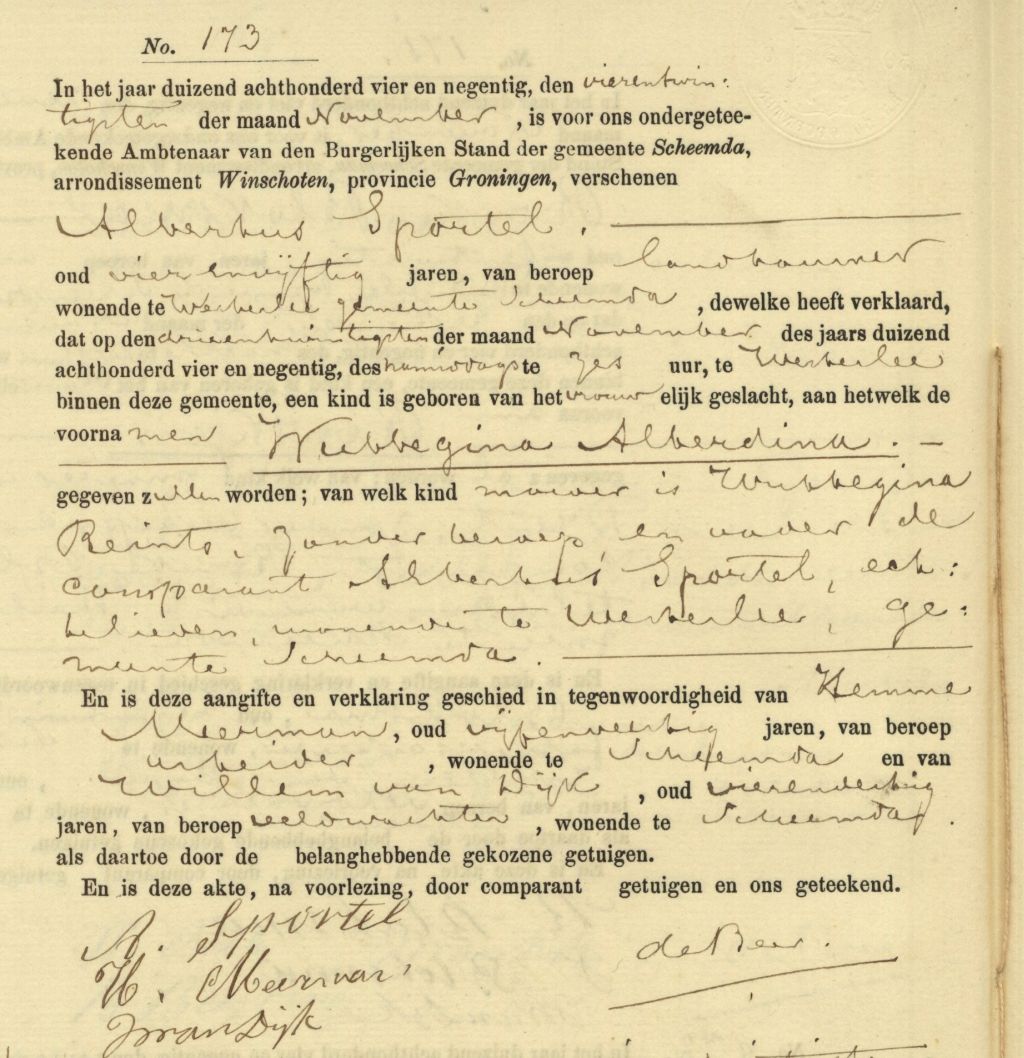 No. 173
In het jaar duizend achthonderd vier en negentig, den vierentwin:
tigsten der maand November, is voor ons ondergetee-
kende Ambtenaar van den Burgerlijken Stand der gemeente Scheemda,
arrondissement Winschoten, provincie Groningen, verschenen
Albertus Sportel.
oud vierenvijftig jaren, van beroep landbouwer
wonende te Westerlee gemeente Scheemda, dewelke heeft verklaard,
dat op den drieentwintigsten der maand November des jaars duizend
achthonderd vier en negentig, des namiddags te zes uur, te Westerlee
binnen deze gemeente, een kind is geboren van het vrouwelijk geslacht, aan hetwelk de
voornamen Wubbegina Alberdina. —
gegeven zullen worden; van welk kind moeder is Wubbegina
Reints, zonder beroep en vader de
comparant Albertus Sportel, ech:
telieden, wonende te Westerlee, ge:
meente Scheemda.
En is deze aangifte en verklaring geschied in tegenwoordigheid van Hemme
Meerman, oud vijfenveertig jaren, van beroep
arbeider, wonende te Scheemda en van
Willem van Dijk, oud vierendertig
jaren, van beroep veldwachter, wonende te Scheemda.
als daartoe door de belanghebbende gekozene getuigen.
En is deze akte, na voorlezing, door comparant getuigen en ons geteekend.
A. Sportel
de Beer.
H. Meerman
van Dijk